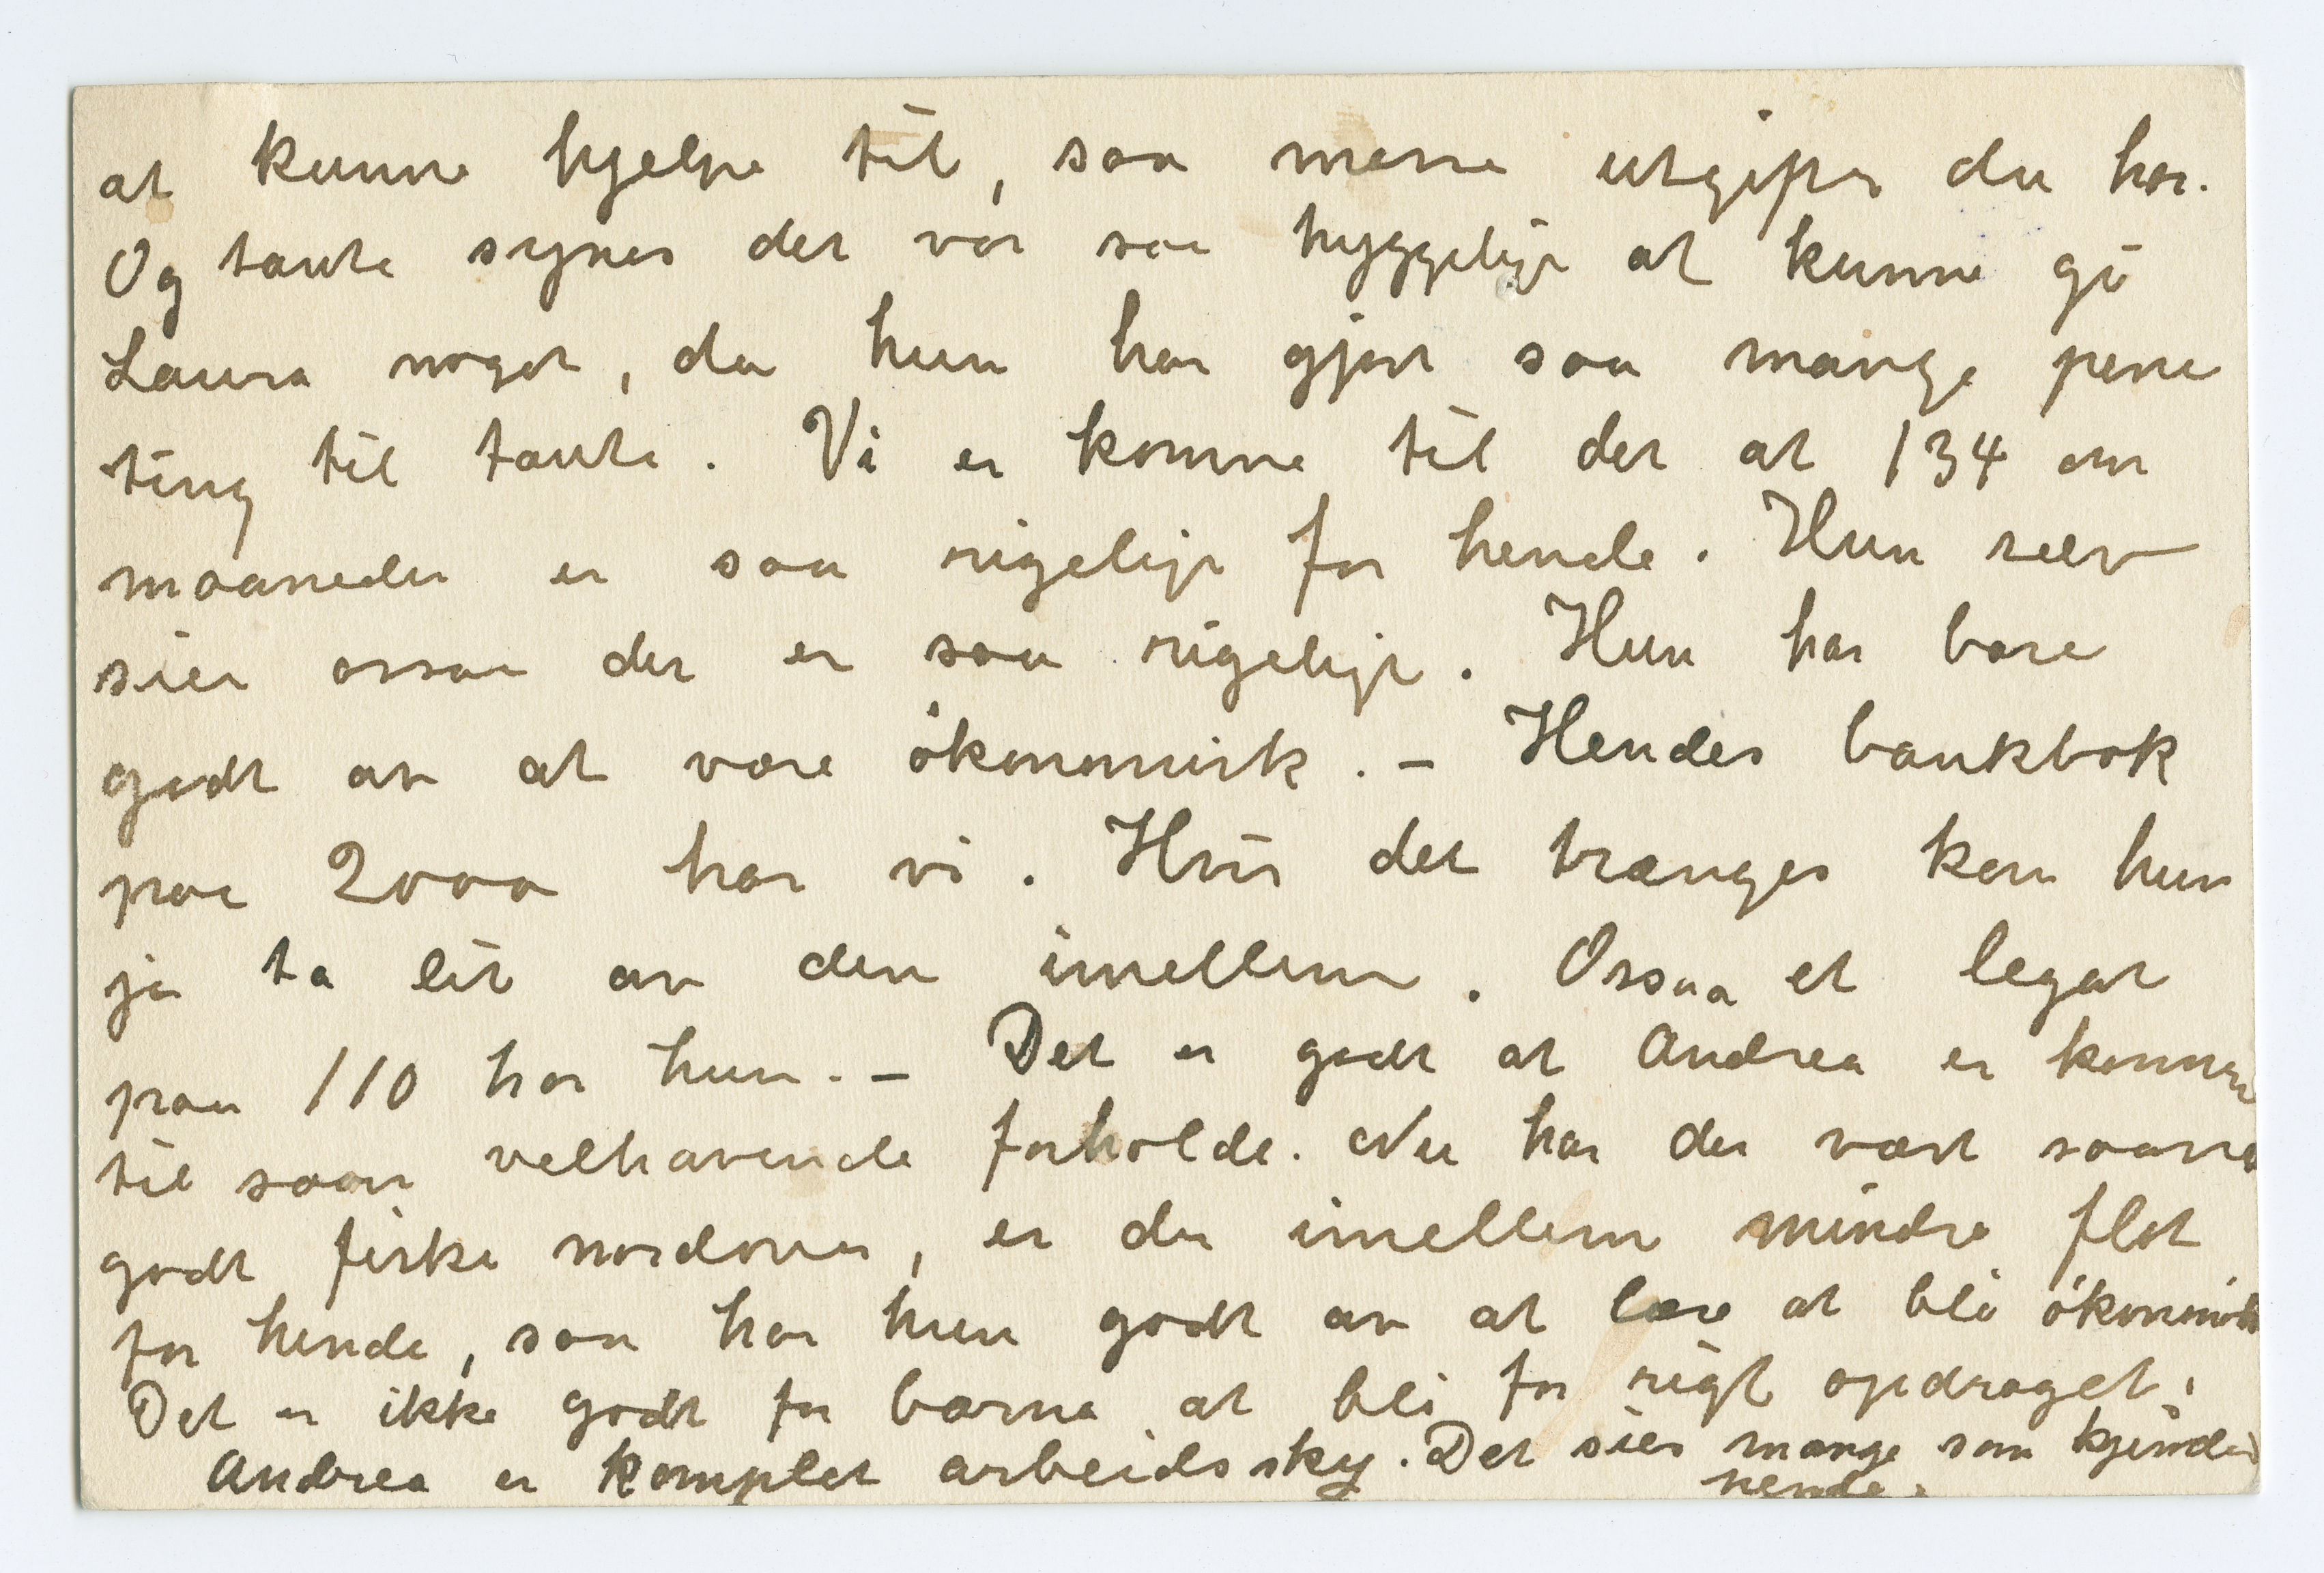 at kunne hjelpe til, saa mene utgifter du har.
Og tante synes det var saa hyggeligt at kunne gi
Laura noget, da hun har gjort saa mange pene
ting til tante. Vi er komne til det at 134 om
maaneden er saa rigeligt for hende. Hun selv
sier ossaa det er saa rigeligt. Hun har bare
godt av at være ökonomisk. – Hendes bankbok
paa 2000 har vi. Hvis det trænges kan hun
jo ta lit av den imellem. Ossaa et legat
paa 110 har hun. – Det er godt at Andrea er komne
til saan velhavende forholde. Nu har det vært saan
godt fiske nordover, er det imellem mindre flot
for hende, saa har hun godt av at lære at bli ökonomisk
Det er ikke godt for barna at bli for rigt opdraget.
Andrea er komplet arbeidssky. Det sier mange som kjender
hende.